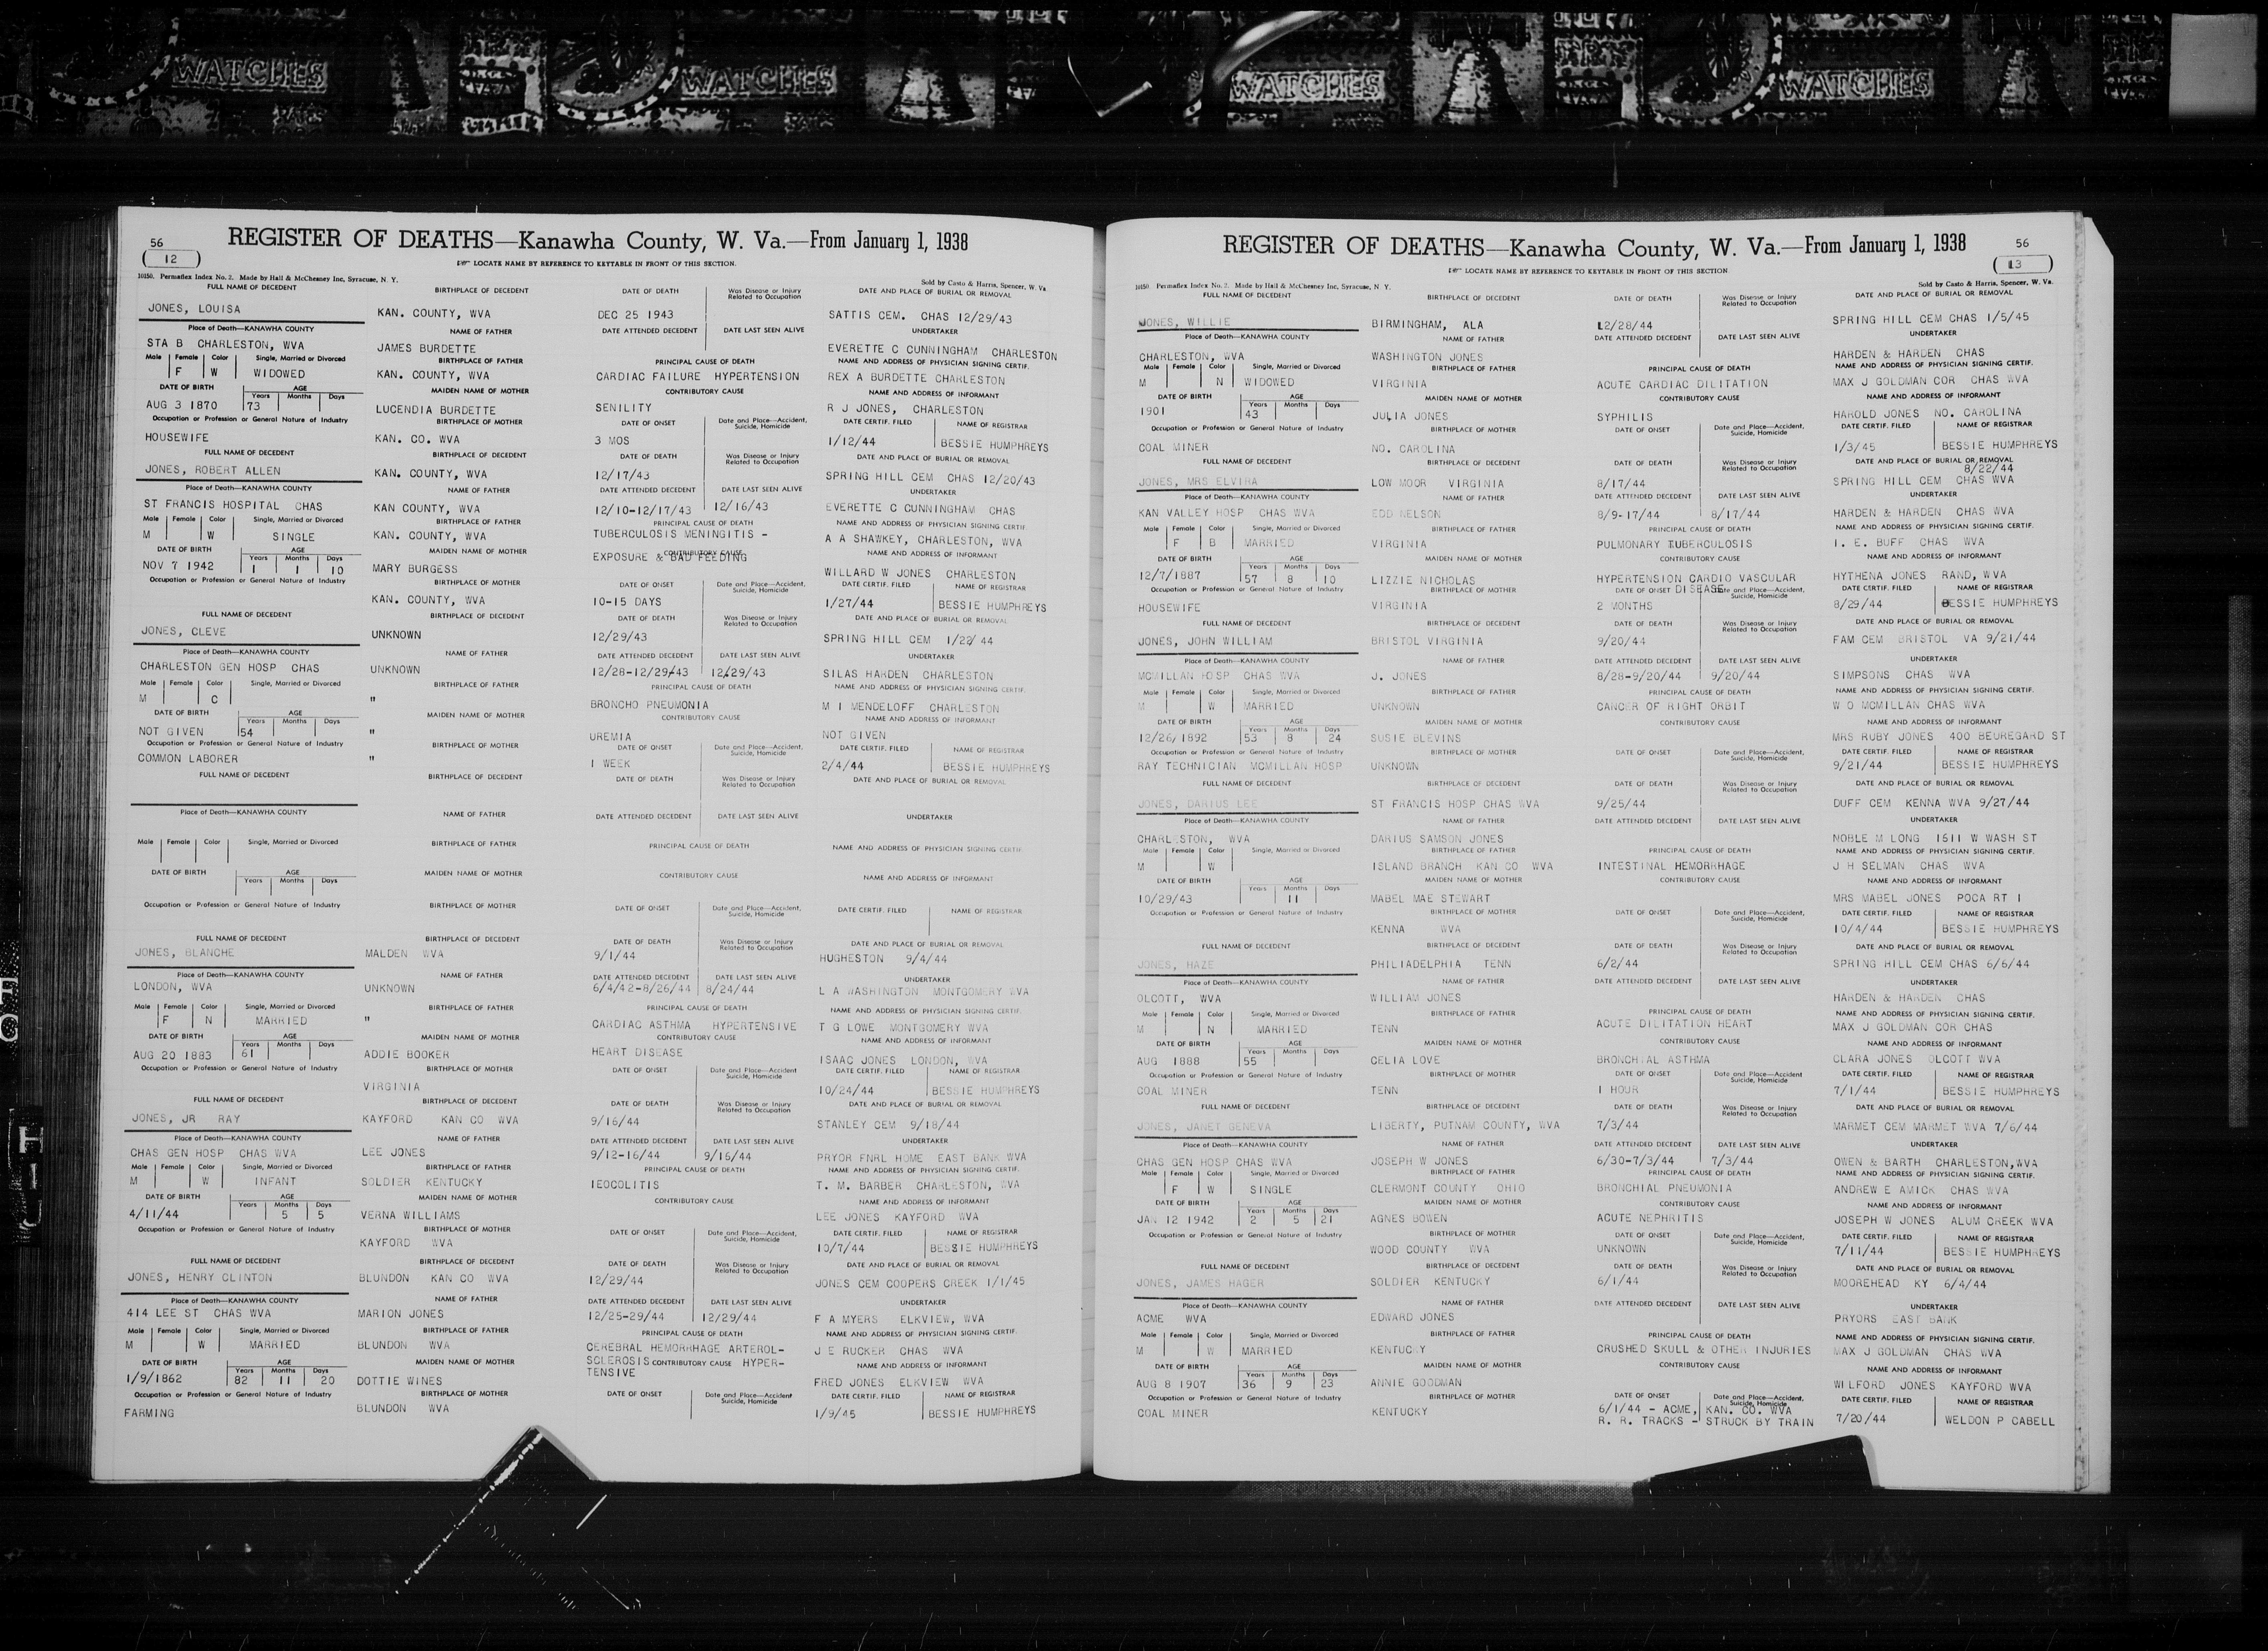 WATCHES WATCHES WATCHES WATCHES
56
12
REGISTER OF DEATHS—Kanawha County, W. Va.—From January 1, 1938
LOCATE NAME BY REFERENCE TO KEYTABLE IN FRONT OF THIS SECTION.
10150. Permaflex Index No. 2. Made by Hall & McChesney Inc, Syracuse, N. Y. Sold by Casto & Harris, Spencer, W. Va
FULL NAME OF DECEDENT BIRTHPLACE OF DECEDENT DATE OF DEATH Was Disease or Injury Related to Occupation DATE AND PLACE OF BURIAL OR REMOVAL
JONES, LOUISA KAN. COUNTY, WVA DEC 25 1943 SATTIS CEM. CHAS 12/29/43
Place of Death—KANAWHA COUNTY NAME OF FATHER DATE ATTENDED DECEDENT DATE LAST SEEN ALIVE UNDERTAKER
STA B CHARLESTON, WVA JAMES BURDETTE EVERETTE C CUNNINGHAM CHARLESTON
Male Female Color Single, Married or Divorced BIRTHPLACE OF FATHER PRINCIPAL CAUSE OF DEATH NAME AND ADDRESS OF PHYSICIAN SIGNING CERTIF.
F W WIDOWED KAN. COUNTY, WVA CARDIAC FAILURE HYPERTENSION REX A BURDETTE CHARLESTON
DATE OF BIRTH AGE Years Months Days MAIDEN NAME OF MOTHER CONTRIBUTORY CAUSE NAME AND ADDRESS OF INFORMANT
AUG 3 1870 73 LUCENDIA BURDETTE SENILITY R J JONES, CHARLESTON
Occupation or Profession or General Nature of Industry BIRTHPLACE OF MOTHER DATE OF ONSET Date and Place—Accident, Suicide, Homicide DATE CERTIF. FILED NAME OF REGISTRAR
HOUSEWIFE KAN. CO. WVA 3 MOS 1/12/44 BESSIE HUMPHREYS
FULL NAME OF DECEDENT BIRTHPLACE OF DECEDENT DATE OF DEATH Was Disease or Injury Related to Occupation DATE AND PLACE OF BURIAL OR REMOVAL
JONES, ROBERT ALLEN KAN. COUNTY, WVA 12/17/43 SPRING HILL CEM CHAS 12/20/43
Place of Death—KANAWHA COUNTY NAME OF FATHER DATE ATTENDED DECEDENT DATE LAST SEEN ALIVE UNDERTAKER
ST FRANCIS HOSPITAL CHAS KAN COUNTY, WVA 12/10-12/17/43 12/16/43 EVERETTE C CUNNINGHAM CHAS
Male Female Color Single, Married or Divorced BIRTHPLACE OF FATHER PRINCIPAL CAUSE OF DEATH NAME AND ADDRESS OF PHYSICIAN SIGNING CERTIF
M W SINGLE KAN. COUNTY, WVA TUBERCULOSIS MENINGITIS - A A SHAWKEY, CHARLESTON, WVA
DATE OF BIRTH AGE Years Months Days MAIDEN NAME OF MOTHER CONTRIBUTORY CAUSE NAME AND ADDRESS OF INFORMANT
NOV 7 1942 1 1 10 MARY BURGESS EXPOSURE & BAD FEEDING WILLARD W JONES CHARLESTON
Occupation or Profession or General Nature of Industry BIRTHPLACE OF MOTHER DATE OF ONSET Date and Place—Accident, Suicide, Homicide DATE CERTIF. FILED NAME OF REGISTRAR
KAN. COUNTY, WVA 10-15 DAYS 1/27/44 BESSIE HUMPHREYS
FULL NAME OF DECEDENT BIRTHPLACE OF DECEDENT DATE OF DEATH Was Disease or Injury Related to Occupation DATE AND PLACE OF BURIAL OR REMOVAL
JONES, CLEVE UNKNOWN 12/29/43 SPRING HILL CEM 1/22/ 44
Place of Death—KANAWHA COUNTY NAME OF FATHER DATE ATTENDED DECEDENT DATE LAST SEEN ALIVE UNDERTAKER
CHARLESTON GEN HOSP CHAS UNKNOWN 12/28-12/29/43 12/29/43 SILAS HARDEN CHARLESTON
Male Female Color Single, Married or Divorced BIRTHPLACE OF FATHER PRINCIPAL CAUSE OF DEATH NAME AND ADDRESS OF PHYSICIAN SIGNING CERTIF.
M C " BRONCHO PNEUMONIA M I MENDELOFF CHARLESTON
DATE OF BIRTH AGE Years Months Days MAIDEN NAME OF MOTHER CONTRIBUTORY CAUSE NAME AND ADDRESS OF INFORMANT
NOT GIVEN 54 " UREMIA NOT GIVEN
Occupation or Profession or General Nature of Industry BIRTHPLACE OF MOTHER DATE OF ONSET Date and Place—Accident, Suicide, Homicide DATE CERTIF. FILED NAME OF REGISTRAR
COMMON LABORER " 1 WEEK 2/4/44 BESSIE HUMPHREYS
FULL NAME OF DECEDENT BIRTHPLACE OF DECEDENT DATE OF DEATH Was Disease or Injury Related to Occupation DATE AND PLACE OF BURIAL OR REMOVAL
Place of Death—KANAWHA COUNTY NAME OF FATHER DATE ATTENDED DECEDENT DATE LAST SEEN ALIVE UNDERTAKER
Male Female Color Single, Married or Divorced BIRTHPLACE OF FATHER PRINCIPAL CAUSE OF DEATH NAME AND ADDRESS OF PHYSICIAN SIGNING CERTIF.
DATE OF BIRTH AGE Years Months Days MAIDEN NAME OF MOTHER CONTRIBUTORY CAUSE NAME AND ADDRESS OF INFORMANT
Occupation or Profession or General Nature of Industry BIRTHPLACE OF MOTHER DATE OF ONSET Date and Place—Accident, Suicide, Homicide DATE CERTIF. FILED NAME OF REGISTRAR
FULL NAME OF DECEDENT BIRTHPLACE OF DECEDENT DATE OF DEATH Was Disease or Injury Related to Occupation DATE AND PLACE OF BURIAL OR REMOVAL
JONES, BLANCHE MALDEN WVA 9/1/44 HUGHESTON 9/4/44
Place of Death—KANAWHA COUNTY NAME OF FATHER DATE ATTENDED DECEDENT DATE LAST SEEN ALIVE UNDERTAKER
LONDON, WVA UNKNOWN 6/4/42-8/26/44 8/24/44 L A WASHINGTON MONTGOMERY WVA
Male Female Color Single, Married or Divorced BIRTHPLACE OF FATHER PRINCIPAL CAUSE OF DEATH NAME AND ADDRESS OF PHYSICIAN SIGNING CERTIF.
F N MARRIED " CARDIAC ASTHMA HYPERTENSIVE T G LOWE MONTGOMERY WVA
DATE OF BIRTH AGE Years Months Days MAIDEN NAME OF MOTHER CONTRIBUTORY CAUSE NAME AND ADDRESS OF INFORMANT
AUG 20 1883 61 ADDIE BOOKER HEART DISEASE ISAAC JONES LONDON, WVA
Occupation or Profession or General Nature of Industry BIRTHPLACE OF MOTHER DATE OF ONSET Date and Place—Accident Suicide, Homicide DATE CERTIF. FILED NAME OF REGISTRAR
VIRGINIA 10/24/44 BESSIE HUMPHREYS
FULL NAME OF DECEDENT BIRTHPLACE OF DECEDENT DATE OF DEATH Was Disease or Injury Related to Occupation DATE AND PLACE OF BURIAL OR REMOVAL
JONES, JR RAY KAYFORD KAN CO WVA 9/16/44 STANLEY CEM 9/18/44
Place of Death—KANAWHA COUNTY NAME OF FATHER DATE ATTENDED DECEDENT DATE LAST SEEN ALIVE UNDERTAKER
CHAS GEN HOSP CHAS WVA LEE JONES 9/12-16/44 9/16/44 PRYOR FNRL HOME EAST BANK WVA
Male Female Color Single, Married or Divorced BIRTHPLACE OF FATHER PRINCIPAL CAUSE OF DEATH NAME AND ADDRESS OF PHYSICIAN SIGNING CERTIF.
M W INFANT SOLDIER KENTUCKY IEOCOLITIS T. M. BARBER CHARLESTON, WVA
DATE OF BIRTH AGE Years Months Days MAIDEN NAME OF MOTHER CONTRIBUTORY CAUSE NAME AND ADDRESS OF INFORMANT
4/11/44 5 5 VERNA WILLIAMS LEE JONES KAYFORD WVA
Occupation or Profession or General Nature of Industry BIRTHPLACE OF MOTHER DATE OF ONSET Date and Place—Accident, Suicide, Homicide DATE CERTIF. FILED NAME OF REGISTRAR
KAYFORD WVA 10/7/44 BESSIE HUMPHREYS
FULL NAME OF DECEDENT BIRTHPLACE OF DECEDENT DATE OF DEATH Was Disease or Injury Related to Occupation DATE AND PLACE OF BURIAL OR REMOVAL
JONES, HENRY CLINTON BLUNDON KAN CO WVA 12/29/44 JONES CEM COOPERS CREEK 1/1/45
Place of Death—KANAWHA COUNTY NAME OF FATHER DATE ATTENDED DECEDENT DATE LAST SEEN ALIVE UNDERTAKER
414 LEE ST CHAS WVA MARION JONES 12/25-29/44 12/29/44 F A MYERS ELKVIEW, WVA
Male Female Color Single, Married or Divorced BIRTHPLACE OF FATHER PRINCIPAL CAUSE OF DEATH NAME AND ADDRESS OF PHYSICIAN SIGNING CERTIF.
M W MARRIED BLUNDON WVA CEREBRAL HEMORRHAGE ARTEROL- J E RUCKER CHAS WVA
DATE OF BIRTH AGE Years Months Days MAIDEN NAME OF MOTHER SCLEROSIS CONTRIBUTORY CAUSE HYPER- NAME AND ADDRESS OF INFORMANT
1/9/1862 82 11 20 DOTTIE WINES TENSIVE FRED JONES ELKVIEW WVA
Occupation or Profession or General Nature of Industry BIRTHPLACE OF MOTHER DATE OF ONSET Date and Place—Accident Suicide, Homicide DATE CERTIF. FILED NAME OF REGISTRAR
FARMING BLUNDON WVA 1/9/45 BESSIE HUMPHREYS
REGISTER OF DEATHS—Kanawha County, W. Va.—From January 1, 1938
56
13
LOCATE NAME BY REFERENCE TO KEYTABLE IN FRONT OF THIS SECTION
10150. Permaflex Index No. 2. Made by Hall & McChesney Inc, Syracuse, N. Y. Sold by Casto & Harris, Spencer, W. Va.
FULL NAME OF DECEDENT BIRTHPLACE OF DECEDENT DATE OF DEATH Was Disease or Injury Related to Occupation DATE AND PLACE OF BURIAL OR REMOVAL
JONES, WILLIE BIRMINGHAM, ALA 12/28/44 SPRING HILL CEM CHAS 1/5/45
Place of Death—KANAWHA COUNTY NAME OF FATHER DATE ATTENDED DECEDENT DATE LAST SEEN ALIVE UNDERTAKER
CHARLESTON, WVA WASHINGTON JONES HARDEN & HARDEN CHAS
Male Female Color Single, Married or Divorced BIRTHPLACE OF FATHER PRINCIPAL CAUSE OF DEATH NAME AND ADDRESS OF PHYSICIAN SIGNING CERTIF.
M N WIDOWED VIRGINIA ACUTE CARDIAC DILITATION MAX J GOLDMAN COR CHAS WVA
DATE OF BIRTH AGE Years Months Days MAIDEN NAME OF MOTHER CONTRIBUTORY CAUSE NAME AND ADDRESS OF INFORMANT
1901 43 JULIA JONES SYPHILIS HAROLD JONES NO. CAROLINA
Occupation or Profession or General Nature of Industry BIRTHPLACE OF MOTHER DATE OF ONSET Date and Place—Accident, Suicide, Homicide DATE CERTIF. FILED NAME OF REGISTRAR
COAL MINER NO. CAROLINA 1/3/45 BESSIE HUMPHREYS
FULL NAME OF DECEDENT BIRTHPLACE OF DECEDENT DATE OF DEATH Was Disease or Injury Related to Occupation DATE AND PLACE OF BURIAL OR REMOVAL
8/22/44
JONES, MRS ELVIRA LOW MOOR VIRGINIA 8/17/44 SPRING HILL CEM CHAS WVA
Place of Death—KANAWHA COUNTY NAME OF FATHER DATE ATTENDED DECEDENT DATE LAST SEEN ALIVE UNDERTAKER
KAN VALLEY HOSP CHAS WVA EDD NELSON 8/9-17/44 8/17/44 HARDEN & HARDEN CHAS WVA
Male Female Color Single, Married or Divorced BIRTHPLACE OF FATHER PRINCIPAL CAUSE OF DEATH NAME AND ADDRESS OF PHYSICIAN SIGNING CERTIF.
F B MARRIED VIRGINIA PULMONARY TUBERCULOSIS I. E. BUFF CHAS WVA
DATE OF BIRTH AGE Years Months Days MAIDEN NAME OF MOTHER CONTRIBUTORY CAUSE NAME AND ADDRESS OF INFORMANT
12/7/1887 57 8 10 LIZZIE NICHOLAS HYPERTENSION CARDIO VASCULAR HYTHENA JONES RAND, WVA
Occupation or Profession or General Nature of Industry BIRTHPLACE OF MOTHER DATE OF ONSET DISEASE Suicide, Homicide DATE CERTIF. FILED NAME OF REGISTRAR
HOUSEWIFE VIRGINIA 2 MONTHS 8/29/44 BESSIE HUMPHREYS
FULL NAME OF DECEDENT BIRTHPLACE OF DECEDENT DATE OF DEATH Was Disease or Injury Related to Occupation DATE AND PLACE OF BURIAL OR REMOVAL
JONES, JOHN WILLIAM BRISTOL VIRGINIA 9/20/44 FAM CEM BRISTOL VA 9/21/44
Place of Death—KANAWHA COUNTY NAME OF FATHER DATE ATTENDED DECEDENT DATE LAST SEEN ALIVE UNDERTAKER
MCMILLAN HOSP CHAS WVA J. JONES 8/28-9/20/44 9/20/44 SIMPSONS CHAS WVA
Male Female Color Single, Married or Divorced BIRTHPLACE OF FATHER PRINCIPAL CAUSE OF DEATH NAME AND ADDRESS OF PHYSICIAN SIGNING CERTIF.
M W MARRIED UNKNOWN CANCER OF RIGHT ORBIT W O MCMILLAN CHAS WVA
DATE OF BIRTH AGE Years Months Days MAIDEN NAME OF MOTHER CONTRIBUTORY CAUSE NAME AND ADDRESS OF INFORMANT
12/26/1892 53 8 24 SUSIE BLEVINS MRS RUBY JONES 400 BEUREGARD ST
Occupation or Profession or General Nature of Industry BIRTHPLACE OF MOTHER DATE OF ONSET Date and Place—Accident, Suicide, Homicide DATE CERTIF. FILED NAME OF REGISTRAR
RAY TECHNICIAN MCMILLAN HOSP UNKNOWN 9/21/44 BESSIE HUMPHREYS
FULL NAME OF DECEDENT BIRTHPLACE OF DECEDENT DATE OF DEATH Was Disease or Injury Related to Occupation DATE AND PLACE OF BURIAL OR REMOVAL
JONES, DARIUS LEE ST FRANCIS HOSP CHAS WVA 9/25/44 DUFF CEM KENNA WVA 9/27/44
Place of Death—KANAWHA COUNTY NAME OF FATHER DATE ATTENDED DECEDENT DATE LAST SEEN ALIVE UNDERTAKER
CHARLESTON, WVA DARIUS SAMSON JONES NOBLE M LONG 1611 W WASH ST
Male Female Color Single, Married or Divorced BIRTHPLACE OF FATHER PRINCIPAL CAUSE OF DEATH NAME AND ADDRESS OF PHYSICIAN SIGNING CERTIF.
M W ISLAND BRANCH KAN CO WVA INTESTINAL HEMORRHAGE J H SELMAN CHAS WVA
DATE OF BIRTH AGE Years Months Days MAIDEN NAME OF MOTHER CONTRIBUTORY CAUSE NAME AND ADDRESS OF INFORMANT
10/29/43 11 MABEL MAE STEWART MRS MABEL JONES POCA RT 1
Occupation or Profession or General Nature of Industry BIRTHPLACE OF MOTHER DATE OF ONSET Date and Place—Accident, Suicide, Homicide DATE CERTIF. FILED NAME OF REGISTRAR
KENNA WVA 10/4/44 BESSIE HUMPHREYS
FULL NAME OF DECEDENT BIRTHPLACE OF DECEDENT DATE OF DEATH Was Disease or Injury Related to Occupation DATE AND PLACE OF BURIAL OR REMOVAL
JONES, HAZE PHILIADELPHIA TENN 6/2/44 SPRING HILL CEM CHAS 6/6/44
Place of Death—KANAWHA COUNTY NAME OF FATHER DATE ATTENDED DECEDENT DATE LAST SEEN ALIVE UNDERTAKER
OLCOTT, WVA WILLIAM JONES HARDEN & HARDEN CHAS
Male Female Color Single, Married or Divorced BIRTHPLACE OF FATHER PRINCIPAL CAUSE OF DEATH NAME AND ADDRESS OF PHYSICIAN SIGNING CERTIF.
M N MARRIED TENN ACUTE DILITATION HEART MAX J GOLDMAN COR CHAS
DATE OF BIRTH AGE Years Months Days MAIDEN NAME OF MOTHER CONTRIBUTORY CAUSE NAME AND ADDRESS OF INFORMANT
AUG 1888 55 CELIA LOVE BRONCHIAL ASTHMA CLARA JONES OLCOTT WVA
Occupation or Profession or General Nature of Industry BIRTHPLACE OF MOTHER DATE OF ONSET Date and Place—Accident Suicide, Homicide DATE CERTIF. FILED NAME OF REGISTRAR
COAL MINER TENN 1 HOUR 7/1/44 BESSIE HUMPHREYS
FULL NAME OF DECEDENT BIRTHPLACE OF DECEDENT DATE OF DEATH Was Disease or Injury Related to Occupation DATE AND PLACE OF BURIAL OR REMOVAL
JONES, JANET GENEVA LIBERTY, PUTNAM COUNTY, WVA 7/3/44 MARMET CEM MARMET WVA 7/6/44
Place of Death—KANAWHA COUNTY NAME OF FATHER DATE ATTENDED DECEDENT DATE LAST SEEN ALIVE UNDERTAKER
CHAS GEN HOSP CHAS WVA JOSEPH W JONES 6/30-7/3/44 7/3/44 OWEN & BARTH CHARLESTON, WVA
Male Female Color Single, Married or Divorced BIRTHPLACE OF FATHER PRINCIPAL CAUSE OF DEATH NAME AND ADDRESS OF PHYSICIAN SIGNING CERTIF.
F W SINGLE CLERMONT COUNTY OHIO BRONCHIAL PNEUMONIA ANDREW E AMICK CHAS WVA
DATE OF BIRTH AGE Years Months Days MAIDEN NAME OF MOTHER CONTRIBUTORY CAUSE NAME AND ADDRESS OF INFORMANT
JAN 12 1942 2 5 21 AGNES BOWEN ACUTE NEPHRITIS JOSEPH W JONES ALUM CREEK WVA
Occupation or Profession or General Nature of Industry BIRTHPLACE OF MOTHER DATE OF ONSET Date and Place—Accident, Suicide, Homicide DATE CERTIF. FILED NAME OF REGISTRAR
WOOD COUNTY WVA UNKNOWN 7/11/44 BESSIE HUMPHREYS
FULL NAME OF DECEDENT BIRTHPLACE OF DECEDENT DATE OF DEATH Was Disease or Injury Related to Occupation DATE AND PLACE OF BURIAL OR REMOVAL
JONES, JAMES HAGER SOLDIER KENTUCKY 6/1/44 MOOREHEAD KY 6/4/44
Place of Death—KANAWHA COUNTY NAME OF FATHER DATE ATTENDED DECEDENT DATE LAST SEEN ALIVE UNDERTAKER
ACME WVA EDWARD JONES PRYORS EAST BANK
Male Female Color Single, Married or Divorced BIRTHPLACE OF FATHER PRINCIPAL CAUSE OF DEATH NAME AND ADDRESS OF PHYSICIAN SIGNING CERTIF.
M W MARRIED KENTUCKY CRUSHED SKULL & OTHER INJURIES MAX J GOLDMAN CHAS WVA
DATE OF BIRTH AGE Years Months Days MAIDEN NAME OF MOTHER CONTRIBUTORY CAUSE NAME AND ADDRESS OF INFORMANT
AUG 8 1907 36 9 23 ANNIE GOODMAN WILFORD JONES KAYFORD WVA
Occupation or Profession or General Nature of Industry BIRTHPLACE OF MOTHER DATE OF ONSET Date and Place—Accident, Suicide, Homicide DATE CERTIF. FILED NAME OF REGISTRAR
COAL MINER KENTUCKY 6/1/44 - ACME, KAN. CO. WVA 7/20/44 WELDON P CABELL
R. R. TRACKS - STRUCK BY TRAIN